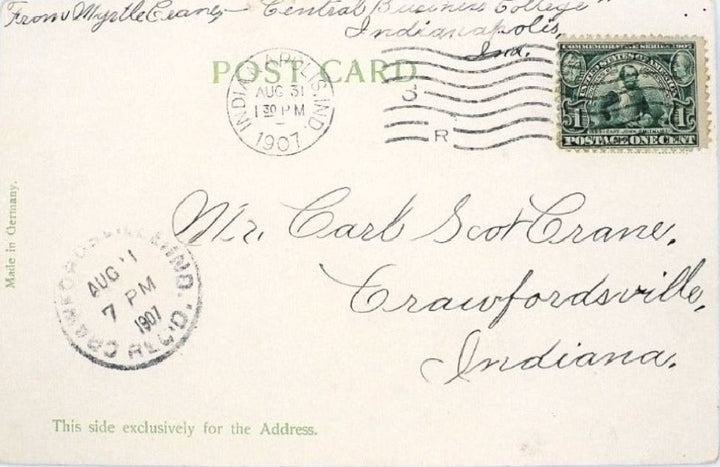 From Myrtle Crane, Central Business College
Indianapolis,
Ind.
POST CARD
INDIANAPOLIS, IND.
AUG 31
1 30 PM
1907
3
R
COMMEMORATIVE SERIES 1907
UNITED STATES OF AMERICA
1 1
POSTAGE ONE CENT
Made in Germany.
Mr. Carl Scot Crane,
Crawfordsville,
Indiana.
CRAWFORDSVILLE, IND.
AUG 1
7 PM
1907
REC'D.
This side exclusively for the Address.